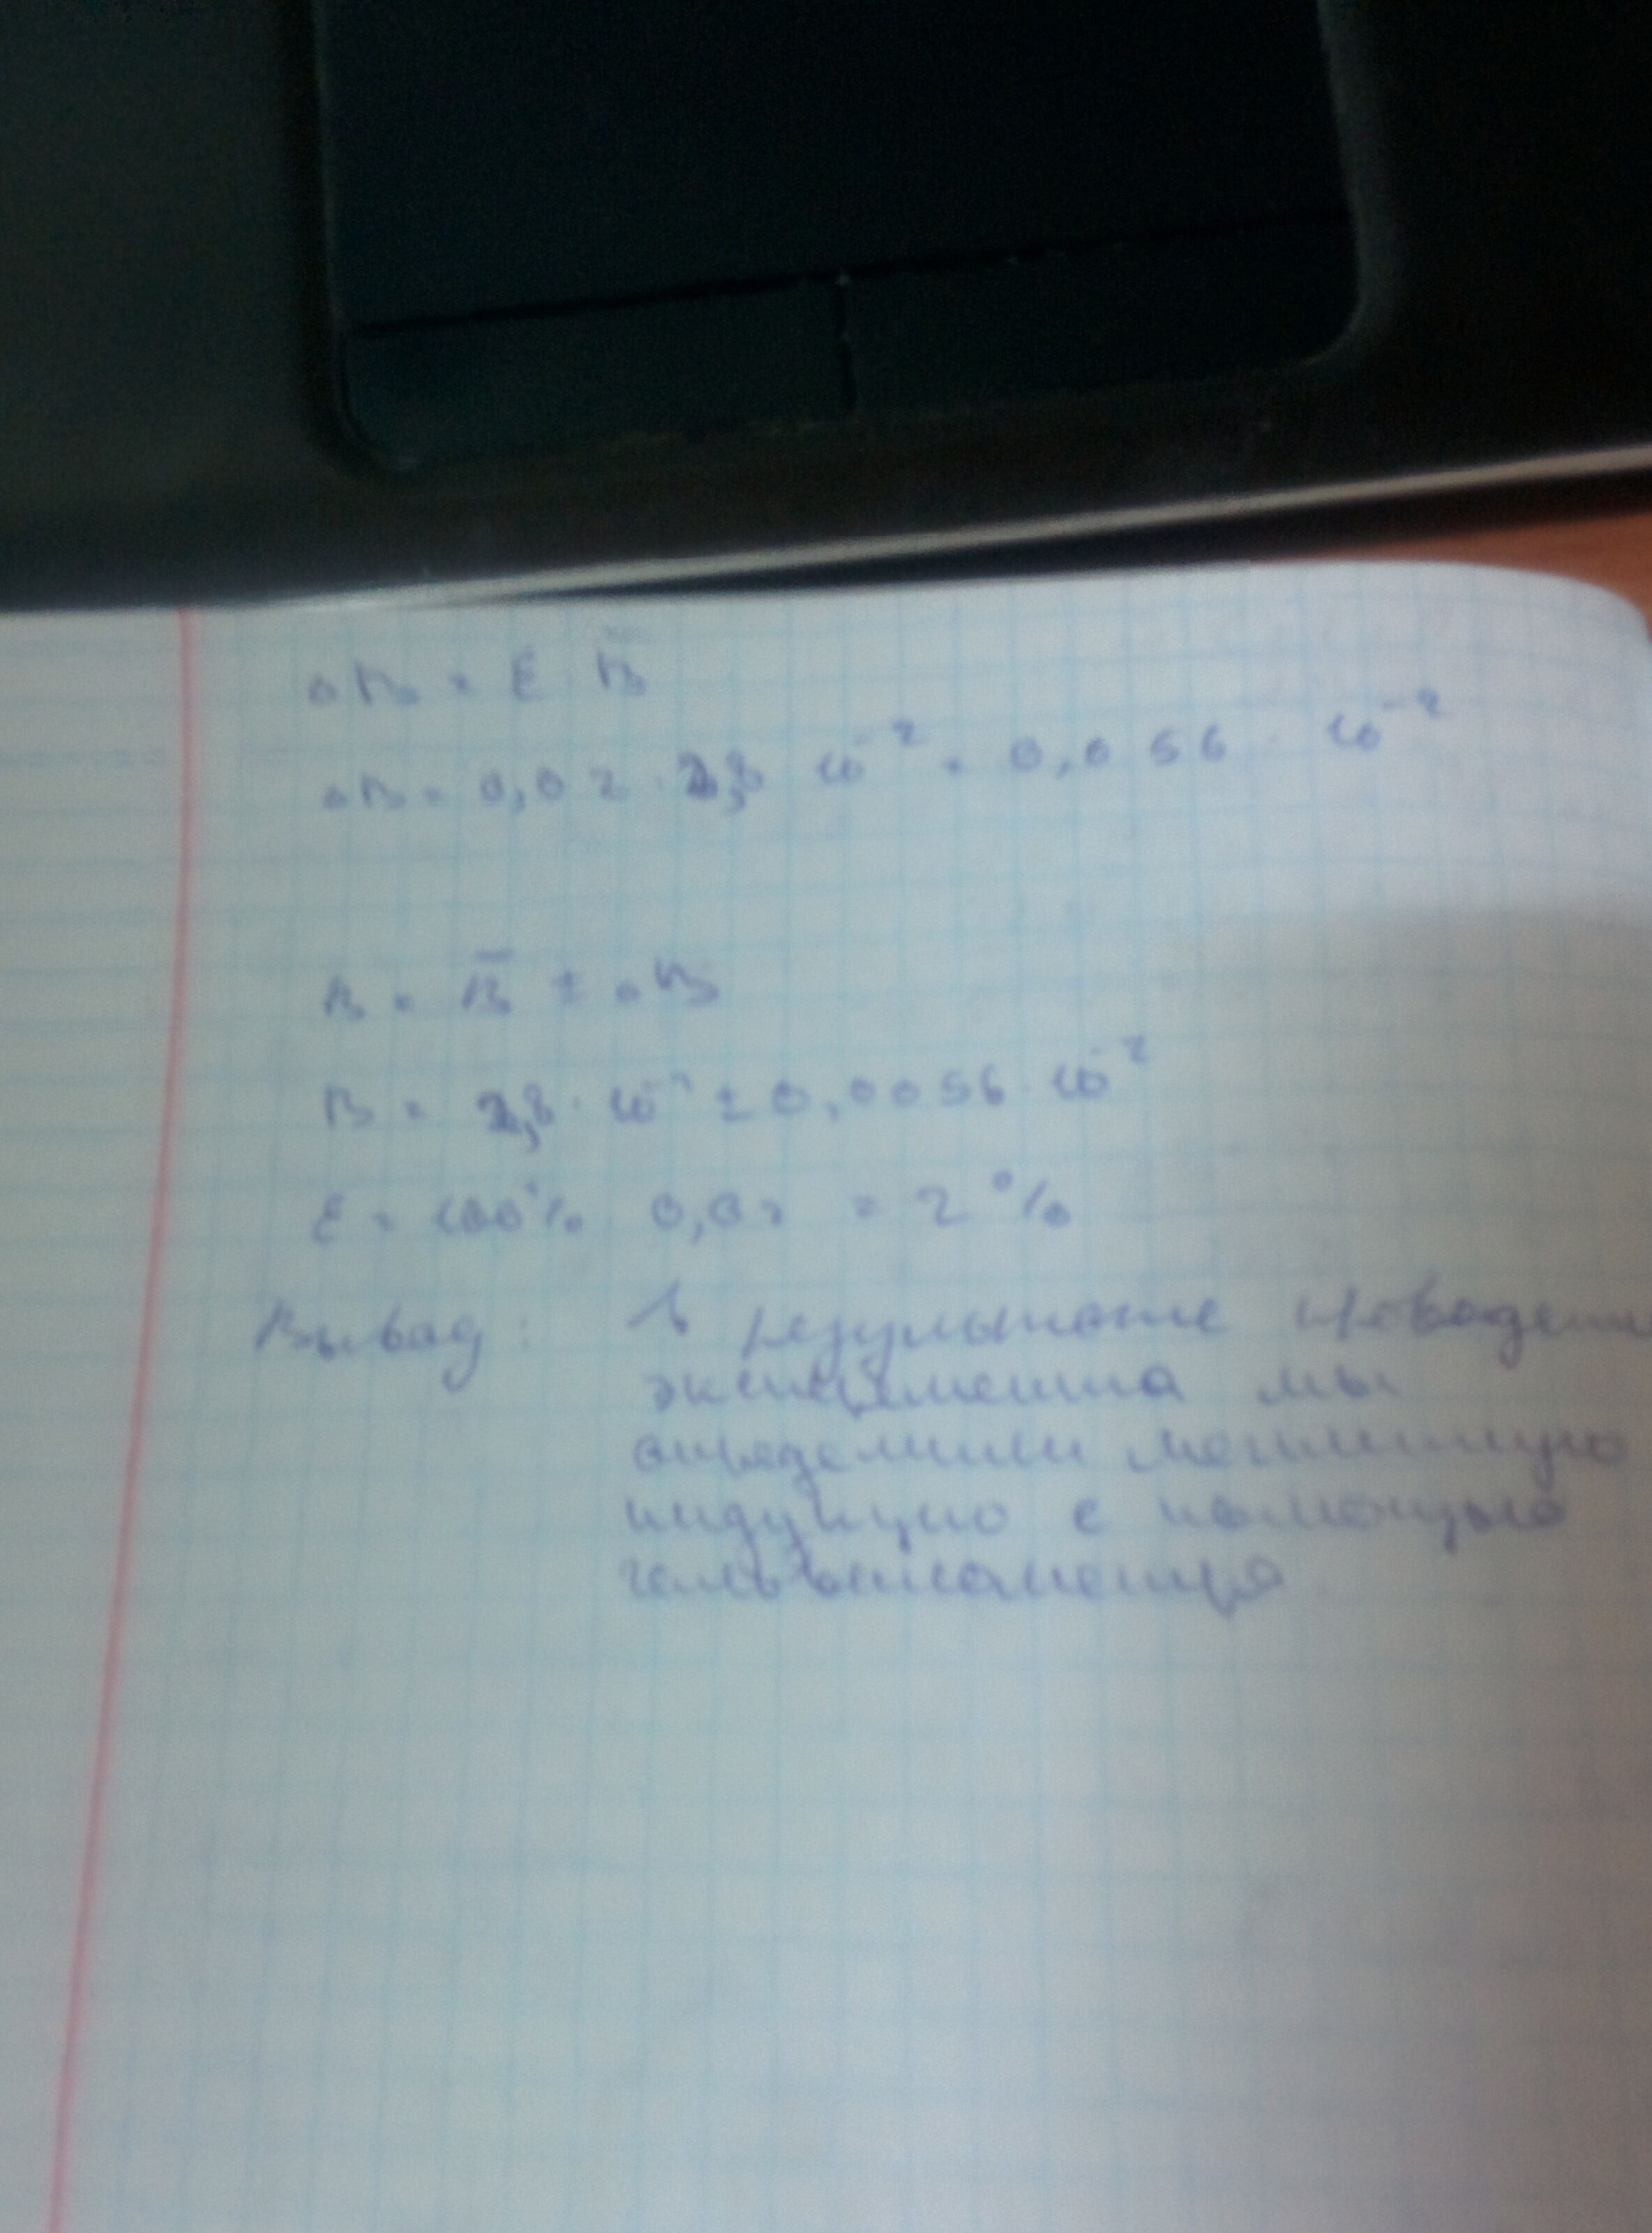 ΔB = ε · B̅
ΔB = 0,02 · 2,8 · 10⁻² = 0,056 · 10⁻²
B = B̅ ± ΔB
B = 2,8 · 10⁻² ± 0,0056 · 10⁻²
ε = 100% · 0,02 = 2%
Вывод: В результате проведени
эксперимента мы
определили магнитную
индукцию с помощью
гальванометра